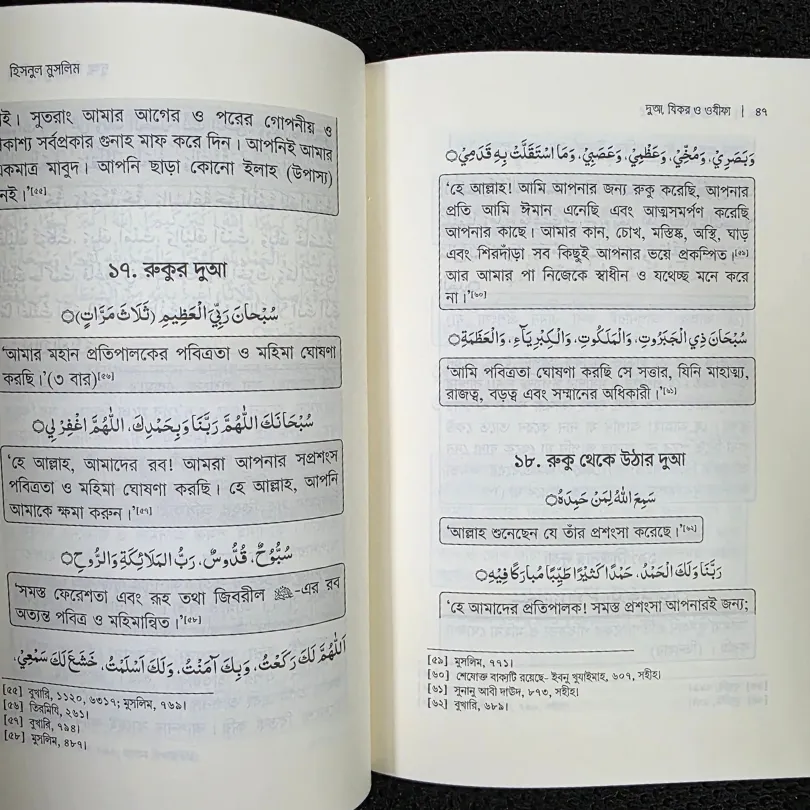 হিসনুল মুসলিম
ই। সুতরাং আমার আগের ও পরের গোপনীয় ও
কাশ্য সর্বপ্রকার গুনাহ মাফ করে দিন। আপনিই আমার
কমাত্র মাবুদ। আপনি ছাড়া কোনো ইলাহ (উপাস্য)
নেই।’[৫৫]
১৭. রুকুর দুআ
سُبْحَانَ رَبِّيَ الْعَظِيمِ (ثَلَاثَ مَرَّاتٍ)○
‘আমার মহান প্রতিপালকের পবিত্রতা ও মহিমা ঘোষণা
করছি।’(৩ বার)[৫৬]
سُبْحَانَكَ اللَّهُمَّ رَبَّنَا وَبِحَمْدِكَ، اللَّهُمَّ اغْفِرْ لِي○
‘হে আল্লাহ, আমাদের রব! আমরা আপনার সপ্রশংস
পবিত্রতা ও মহিমা ঘোষণা করছি। হে আল্লাহ, আপনি
আমাকে ক্ষমা করুন।’[৫৭]
سُبُّوْحٌ، قُدُّوسٌ، رَبُّ الْمَلَائِكَةِ وَالرُّوحِ○
‘সমস্ত ফেরেশতা এবং রূহ তথা জিবরীল ﷺ-এর রব
অত্যন্ত পবিত্র ও মহিমান্বিত।’[৫৮]
اَللَّهُمَّ لَكَ رَكَعْتُ، وَبِكَ آمَنْتُ، وَلَكَ اَسْلَمْتُ، خَشَعَ لَكَ سَمْعِيْ،
[৫৫] বুখারি, ১১২০, ৬৩১৭; মুসলিম, ৭৬৯।
[৫৬] তিরমিযি, ২৬১।
[৫৭] বুখারি, ৭৯৪।
[৫৮] মুসলিম, ৪৮৭।
দুআ, যিকর ও ওযীফা | ৪৭
وَبَصَرِيْ، وَمُخِّيْ، وَعَظْمِيْ، وَعَصَبِيْ، وَمَا اسْتَقَلَّتْ بِهِ قَدَمِيْ○
‘হে আল্লাহ! আমি আপনার জন্য রুকু করেছি, আপনার
প্রতি আমি ঈমান এনেছি এবং আত্মসমর্পণ করেছি
আপনার কাছে। আমার কান, চোখ, মস্তিষ্ক, অস্থি, ঘাড়
এবং শিরদাঁড়া সব কিছুই আপনার ভয়ে প্রকম্পিত।[৫৯]
আর আমার পা নিজেকে স্বাধীন ও যথেচ্ছ মনে করে
না।’[৬০]
سُبْحَانَ ذِي الْجَبَرُوتِ، وَالْمَلَكُوتِ، وَالْكِبْرِيَآءِ، وَالْعَظَمَةِ○
‘আমি পবিত্রতা ঘোষণা করছি সে সত্তার, যিনি মাহাত্ম্য,
রাজত্ব, বড়ত্ব এবং সম্মানের অধিকারী।’[৬১]
১৮. রুকু থেকে উঠার দুআ
سَمِعَ اللهُ لِمَنْ حَمِدَهُ○
‘আল্লাহ শুনেছেন যে তাঁর প্রশংসা করেছে।’[৬২]
رَبَّنَا وَلَكَ الْحَمْدُ، حَمْدًا كَثِيْرًا طَيِّبًا مُبَارَكًا فِيْهِ○
‘হে আমাদের প্রতিপালক! সমস্ত প্রশংসা আপনারই জন্য;
[৫৯] মুসলিম, ৭৭১।
[৬০] শেষোক্ত বাক্যটি রয়েছে- ইবনু খুযাইমাহ, ৬০৭, সহীহ।
[৬১] সুনানু আবী দাউদ, ৮৭৩, সহীহ।
[৬২] বুখারি, ৬৮৯।